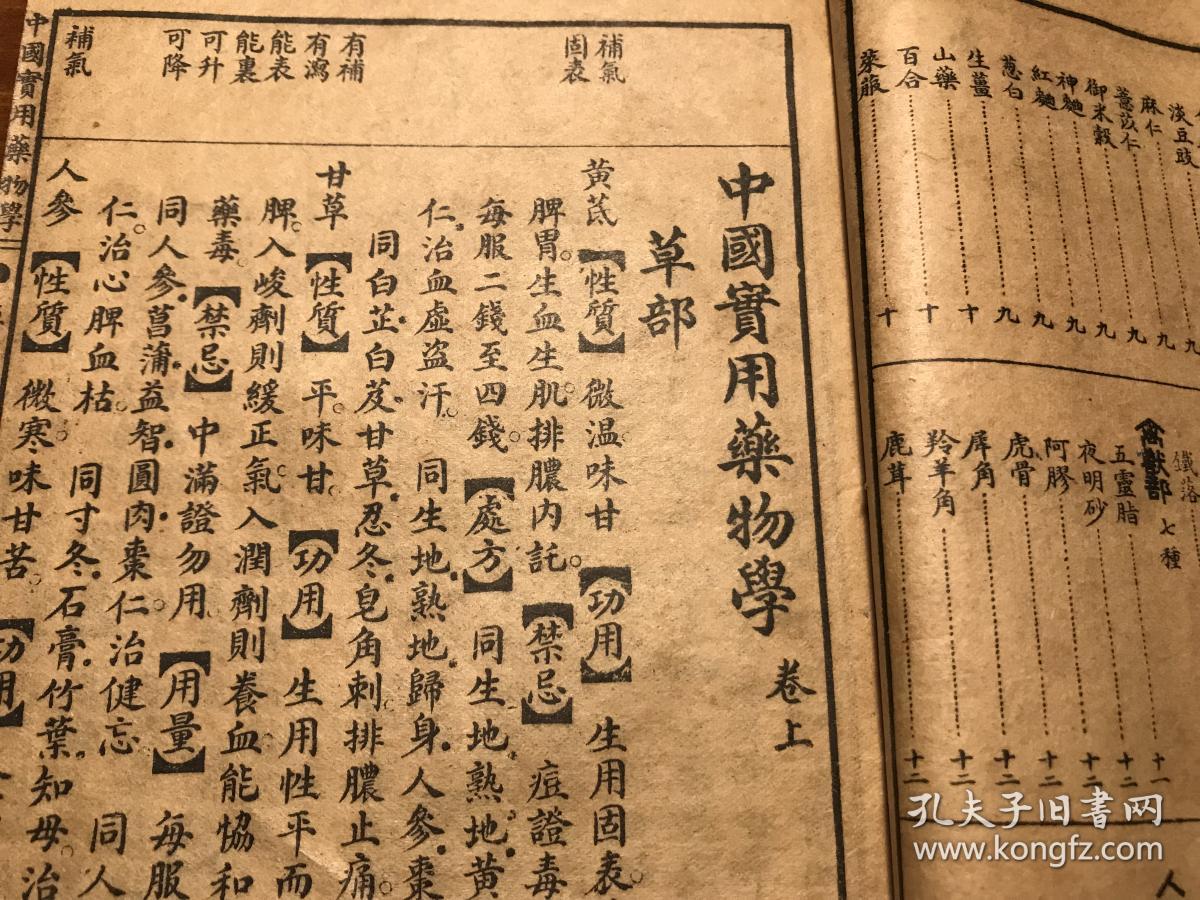 淡豆豉
麻仁
薏苡仁……九
御米殼……九
神麯……九
紅麯……九
葱白……九
生薑……十
山藥……十
百合……十
萊菔……十
鐵落……十一
禽獸部 七種
五靈脂……十二
夜明砂……十二
阿膠……十二
虎骨……十二
犀角……十二
羚羊角……十二
鹿茸……十二
人
中國實用藥物學 卷上
草部
補氣
固表
黃芪【性質】微温味甘。【功用】生用固表。
脾胃。生血生肌。排膿内託。【禁忌】痘證毒
每服二錢至四錢。【處方】同生地。熟地。黃
仁。治血虛盜汗。同生地。熟地。歸身。人參。棗
同白芷。白芨。甘草。忍冬。皂角刺。排膿止痛。
有補
有瀉
能表
能裏
可升
可降
甘草【性質】平。味甘。【功用】生用性平而
脾。入峻劑則緩正氣。入潤劑則養血。能恊和
藥毒。【禁忌】中滿證勿用。【用量】每服
同人參。菖蒲。益智。圓肉。棗仁。治健忘。同人
仁。治心脾血枯。同寸冬。石膏。竹葉。知母。治
補氣
人參【性質】微寒。味甘苦。【功用】
中國實用藥物學
孔夫子旧书网
www.kongfz.com